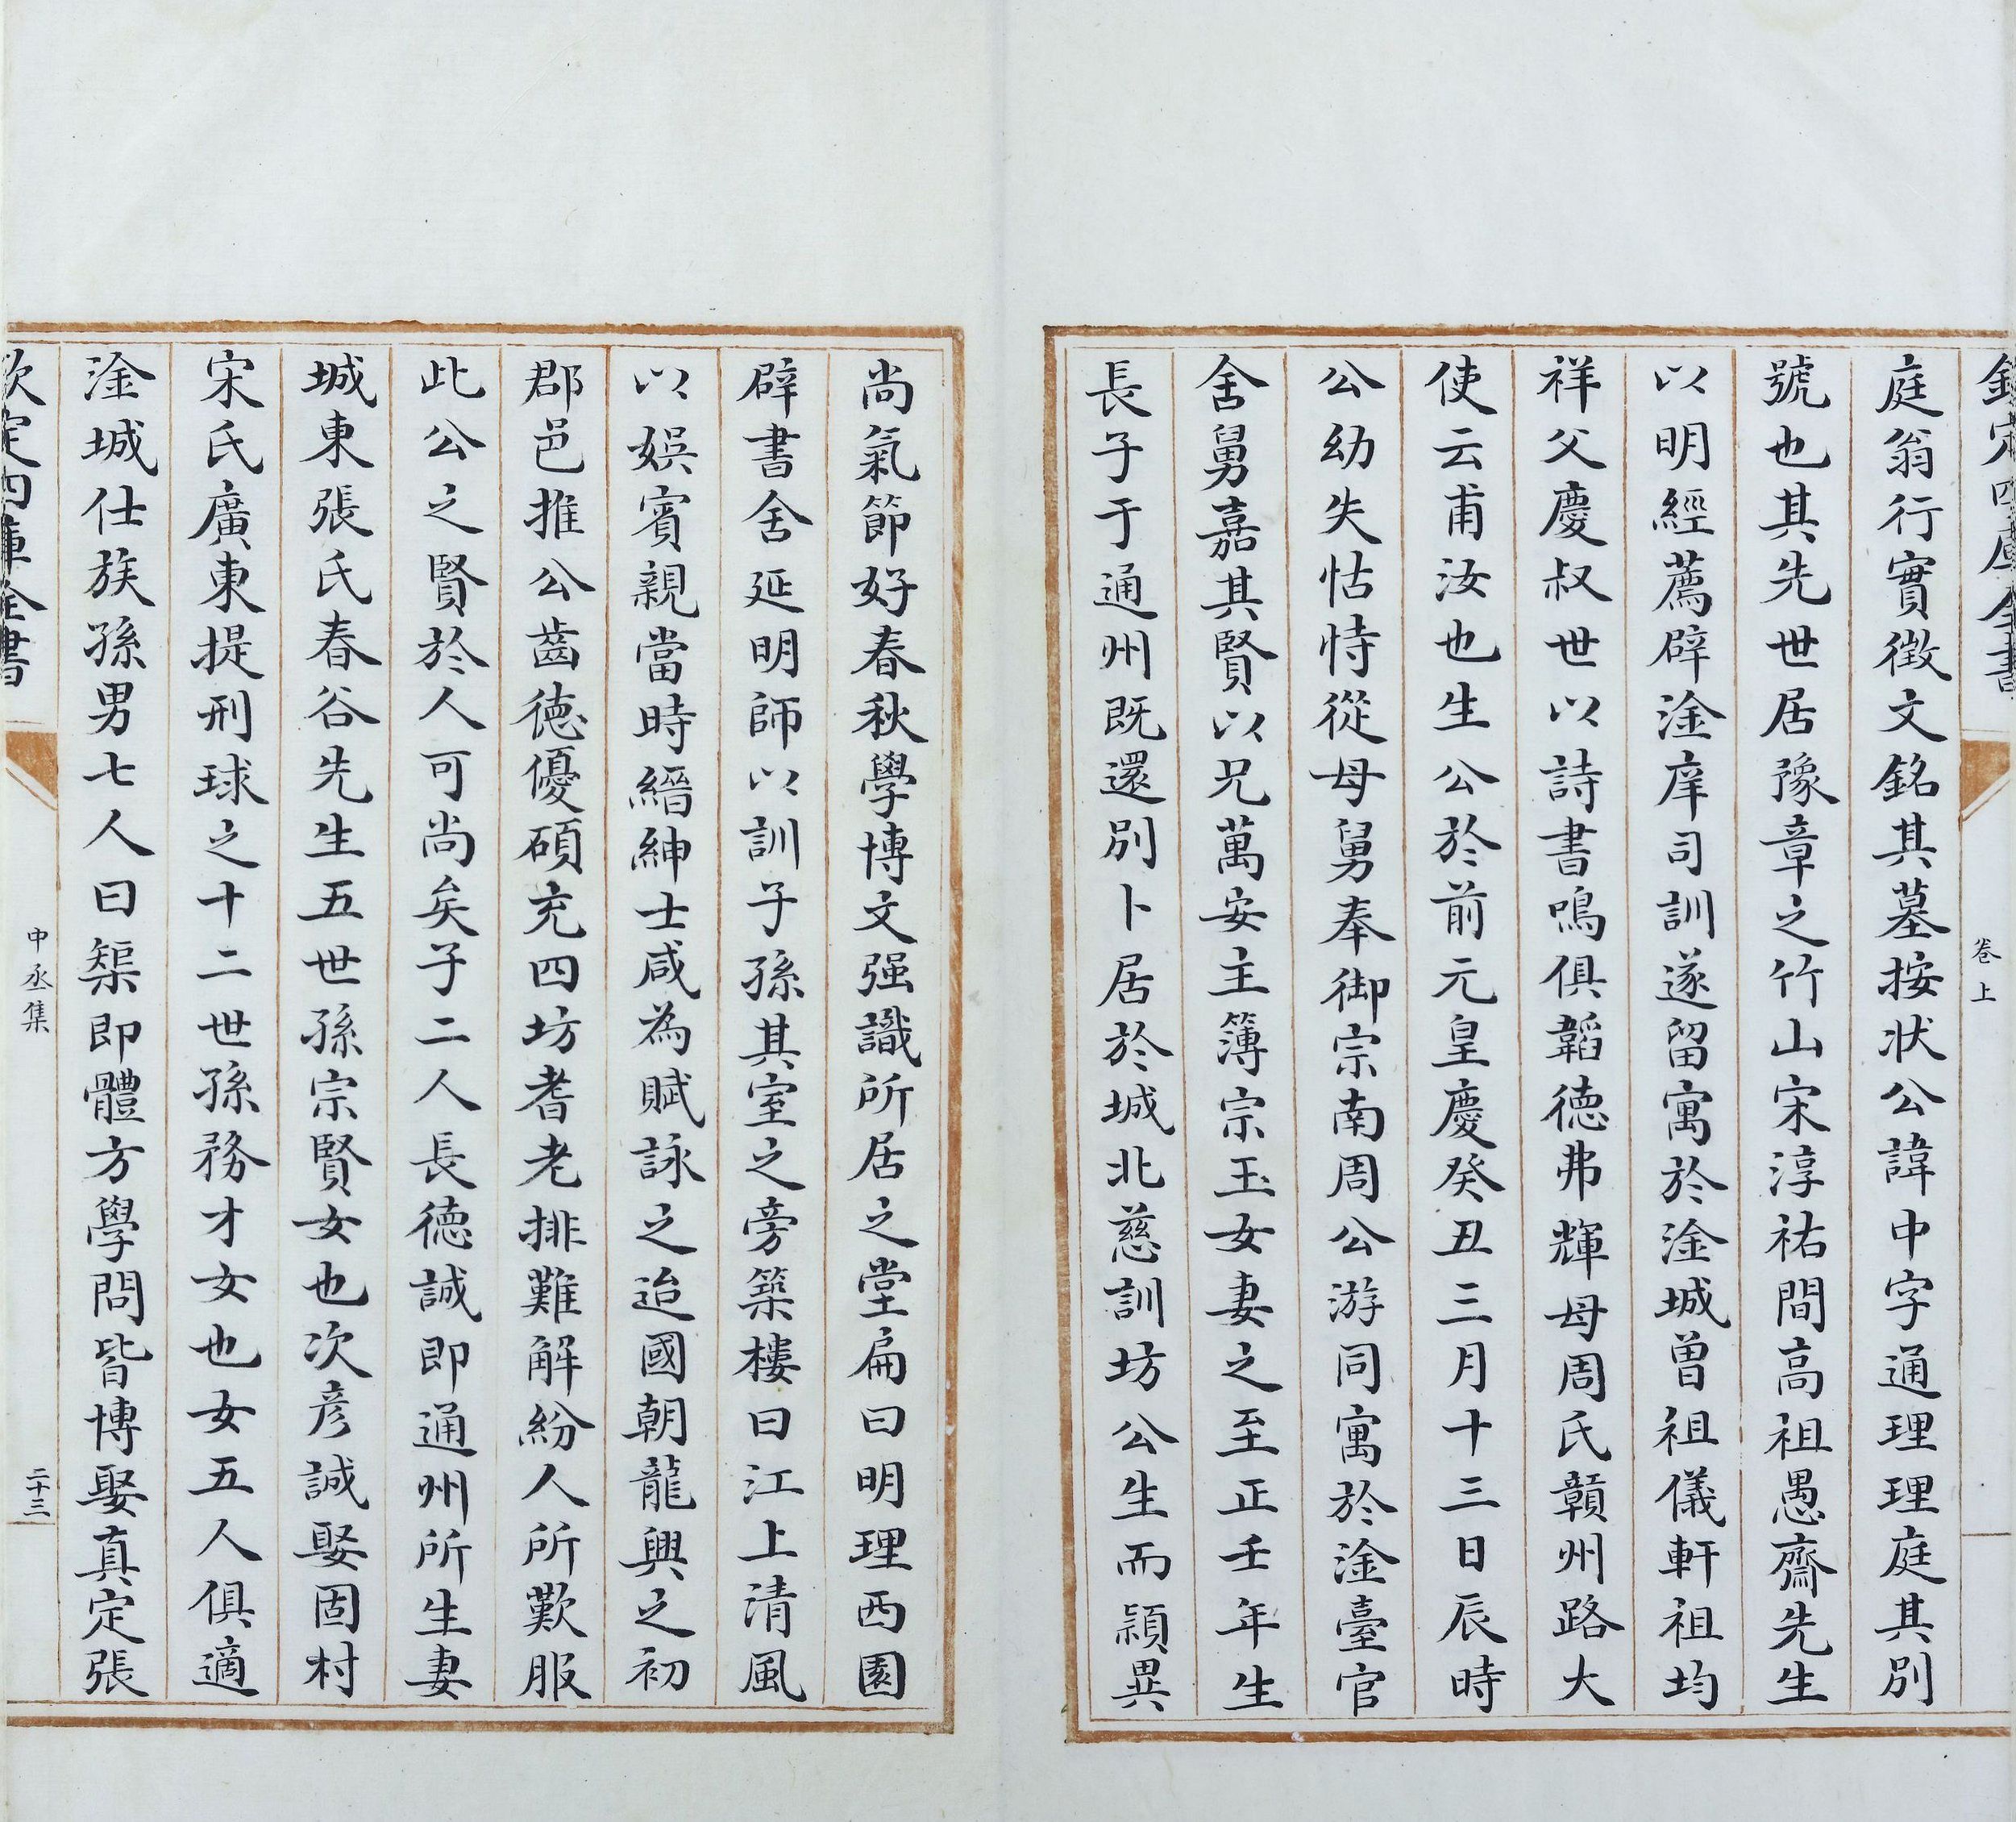 欽定四庫全書
卷上
庭翁行實徴文銘其墓按状公諱中字通理理庭其別
號也其先世居豫章之竹山宋淳祐間高祖愚齋先生
以明經薦辟淦庠司訓遂留寓於淦城曽祖儀軒祖均
祥父慶叔世以詩書鳴俱韜徳弗輝母周氏贑州路大
使云甫汝也生公於前元皇慶癸丑三月十三日辰時
公幼失怙恃從母舅奉御宗南周公游同寓於淦臺官
舍舅嘉其賢以兄萬安主簿宗玉女妻之至正壬年生
長子于通州既還別卜居於城北慈訓坊公生而頴異
尚氣節好春秋學博文强識所居之堂扁曰明理西園
辟書舍延明師以訓子孫其室之旁築樓曰江上清風
以娯賓親當時縉紳士咸為賦詠之迨國朝龍興之初
郡邑推公齒徳優碩充四坊耆老排難解紛人所歎服
此公之賢於人可尚矣子二人長徳誠即通州所生妻
城東張氏春谷先生五世孫宗賢女也次彥誠娶固村
宋氏廣東提刑球之十二世孫務才女也女五人俱適
淦城仕族孫男七人曰榘即體方學問皆博娶真定張
欽定四庫全書
中丞集
二十三